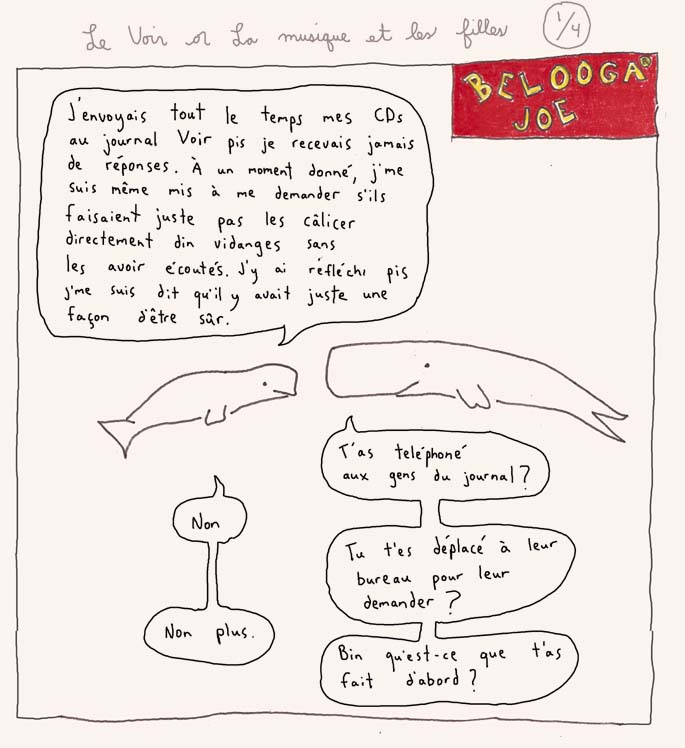 Le Voir or La musique et les filles 1/4
BELOOGA
JOE
J'envoyais tout le temps mes CDs
au journal Voir pis je recevais jamais
de réponses. À un moment donné, j'me
suis même mis à me demander s'ils
faisaient juste pas les câlicer
directement din vidanges sans
les avoir écoutés. J'y ai réfléchi pis
j'me suis dit qu'il y avait juste une
façon d'être sûr.
T'as teléphoné
aux gens du journal?
Non
Tu t'es déplacé à leur
bureau pour leur
demander?
Non plus.
Bin qu'est-ce que t'as
fait d'abord?